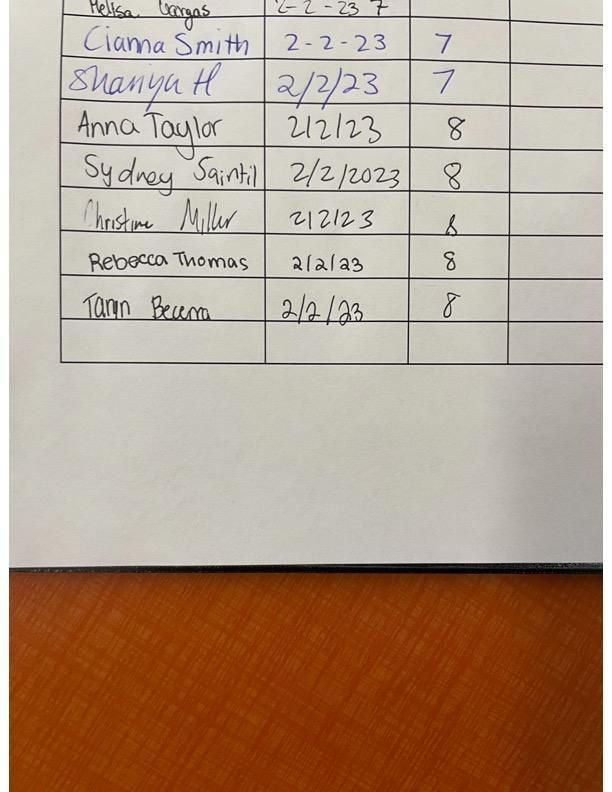 Melisa Vargas 2-2-23 7
Cianna Smith 2-2-23 7
Shaniya H 2/2/23 7
Anna Taylor 2/2/23 8
Sydney Saintil 2/2/2023 8
Christine Miller 2/2/23 8
Rebecca Thomas 2/2/23 8
Taryn Becerra 2/2/23 8